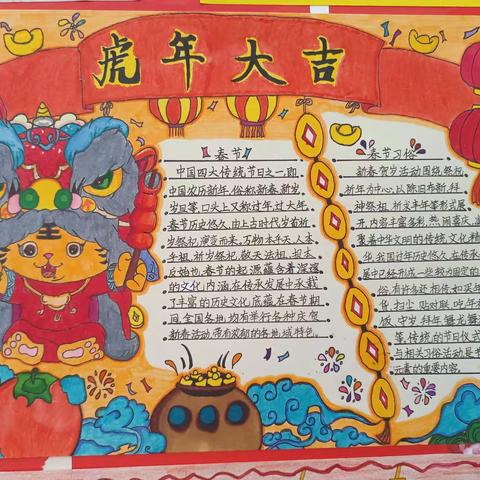 虎年大吉
春节
中国四大传统节日之一,即
中国农历新年,俗称新春、新岁、
岁旦等,口头上又称过年、过大年。
春节历史悠久,由上古时代岁首祈
岁祭祀演变而来。万物本乎天、人本
乎祖,祈岁祭祀、敬天法祖,报本
反始也。春节的起源蕴含着深邃
的文化内涵,在传承发展中承载
了丰富的历史文化底蕴。在春节期
间,全国各地均有举行各种庆贺
新春活动,带有浓郁的各地域特色。
春节习俗
新春贺岁活动围绕祭祝
祈年为中心,以除旧布新、拜
神祭祖、祈求丰年等形式展
开,内容丰富多彩,热闹喜庆,
聚着中华文明的传统文化精
华。我国过年历史悠久,在传承
展中已经形成一些较为固定的
俗,有许多还相传至今,如买年
货、扫尘、贴对联、吃年
饭、守岁、拜年、舞龙舞
等,传统的节日仪式
与相关习俗活动是
元素的重要内容。